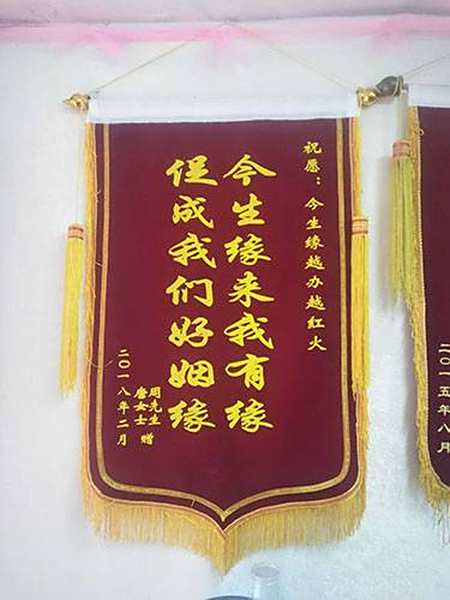 祝愿：今生缘越办越红火
今生缘来我有缘
促成我们好姻缘
周先生
唐女士 赠
二〇一八年二月
二〇一五年八月